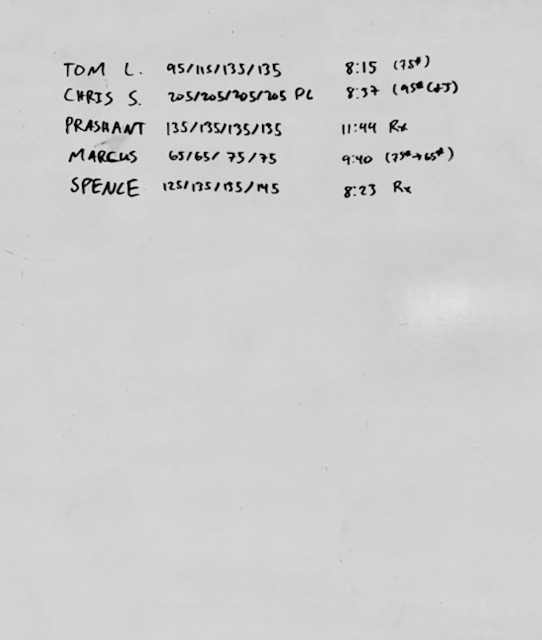 TOM L. 95/115/135/135 8:15 (75#)
CHRIS S. 205/205/205/205 PC 8:37 (95# C+J)
PRASHANT 135/135/135/135 11:44 Rx
MARCUS 65/65/75/75 9:40 (75#→65#)
SPENCE 125/135/135/145 8:23 Rx